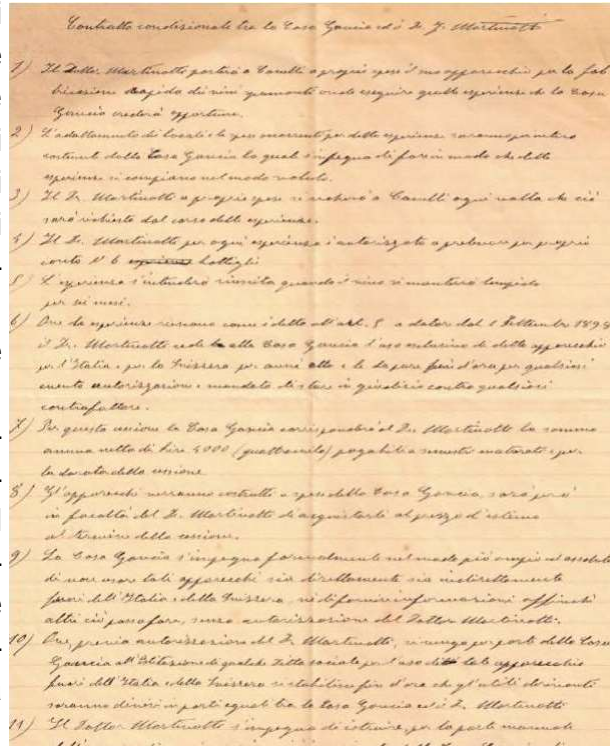 Contratto condizionale tra la Casa Gancia ed il Dr. F. Martinotti
1) Il Dottor Martinotti porterà a Canelli a proprie spese il suo apparecchio per la fab
bricazione rapida di vini spumanti onde eseguire quelle esperienze che la Casa
Gancia crederà opportune.
2) L'adattamento di locali e le spese occorrenti per dette esperienze saranno per intero
sostenute dalla Casa Gancia la quale s'impegna di fare in modo che dette
esperienze si compiano nel modo voluto.
3) Il Dr. Martinotti a proprie spese si recherà a Canelli ogni volta che ciò
sarà richiesto dal corso delle esperienze.
4) Il Dr. Martinotti per ogni esperienza è autorizzato a prelevare per proprio
conto N° 6 bottiglie
5) L'esperienza s'intenderà riuscita quando il vino si manterrà limpido
per sei mesi.
6) Ove le esperienze riescano come è detto all'art. 5 a datare dal 1 Settembre 1898
il Dr. Martinotti cede alla Casa Gancia l'uso esclusivo di detto apparecchio
per l'Italia e per la Svizzera per anni otto e le dà pure fin d'ora per qualsiasi
evento autorizzazione e mandato di stare in giudizio contro qualsiasi
contraffattore.
7) Per questa cessione la Casa Gancia corrisponderà al Dr. Martinotti la somma
annua netta di Lire 4000 (quattromila) pagabili a semestri maturati e per
la durata della cessione
8) Gl'apparecchi verranno costrutti a spese della Casa Gancia, sarà però
in facoltà del Dr. Martinotti di acquistarli al prezzo d'estimo
al termine della cessione.
9) La Casa Gancia s'impegna formalmente nel modo più ampio ed assoluto
di non usare tali apparecchi sia direttamente sia indirettamente
fuori dell'Italia e della Svizzera, nè di fornire informazioni affinchè
altri ciò possa fare, senza autorizzazione del Dottor Martinotti.
10) Ove, previa autorizzazione del Dr. Martinotti, si venga per parte della Casa
Gancia all'Istituzione di qualche Ditta sociale per l'uso di tale apparecchio
fuori dell'Italia e della Svizzera si stabilisce fin d'ora che gl'utili derivanti
saranno divisi in parti eguali tra la Casa Gancia ed il Dr. Martinotti
11) Il Dottor Martinotti s'impegna di istruire, per la parte manuale